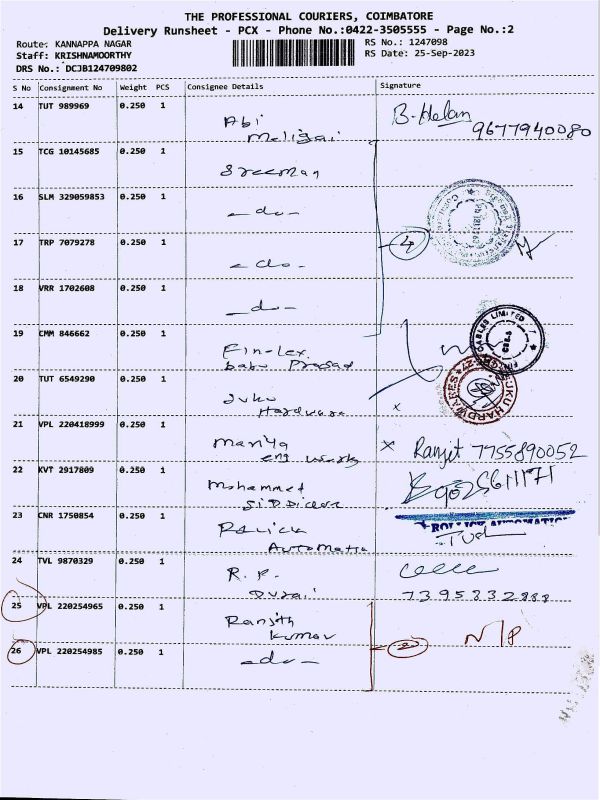 THE PROFESSIONAL COURIERS, COIMBATORE
Delivery Runsheet - PCX - Phone No.:0422-3505555 - Page No.:2
Route: KANNAPPA NAGAR
RS No.: 1247098
Staff: KRISHNAMOORTHY
RS Date: 25-Sep-2023
DRS No.: DCJB124709802
S No Consignment No Weight PCS Consignee Details Signature
14 TUT 989969 0.250 1
Abi
Maligai
B-Helan
9677940080
15 TCG 10145685 0.250 1
Sreeman
16 SLM 329059853 0.250 1
-do-
17 TRP 7079278 0.250 1
-do-
4
18 VRR 1702608 0.250 1
-do-
19 CMM 846662 0.250 1
Fin-Lex
babu Prasad
CABLES LIMITED
20 TUT 6549290 0.250 1
Juku
Hardware
x
JUKU HARDWARES
21 VPL 220418999 0.250 1
Mariya
eng works
x Ranjit 7755890052
22 KVT 2917809 0.250 1
Mohammed
23 CNR 1750854 0.250 1
Automatic
24 TVL 9870329 0.250 1
R.P.
Durai
7395832888
25 VPL 220254965 0.250 1
Ranjith
Kumar
26 VPL 220254985 0.250 1
-do-
2
N/P